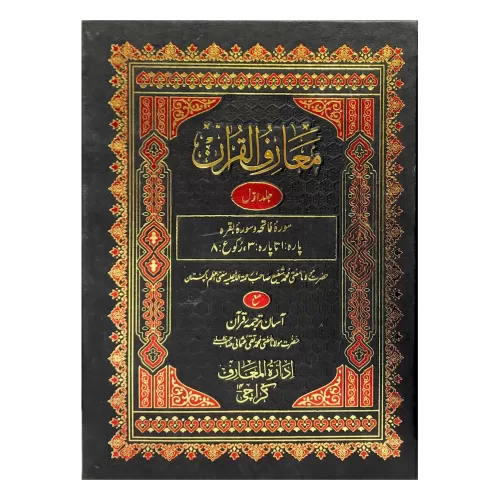 معارف القرآن
جلد اوّل
سورۂ فاتحہ و سورۂ بقرہ
پارہ: ۱ تا پارہ: ۳، رکوع: ۸
حضرت مولانا مفتی محمد شفیع صاحب رحمۃ اللہ علیہ مفتی اعظم پاکستان
مع
آسان ترجمۂ قرآن
حضرت مولانا مفتی محمد تقی عثمانی صاحب
ادارۃ المعارف
کراچی